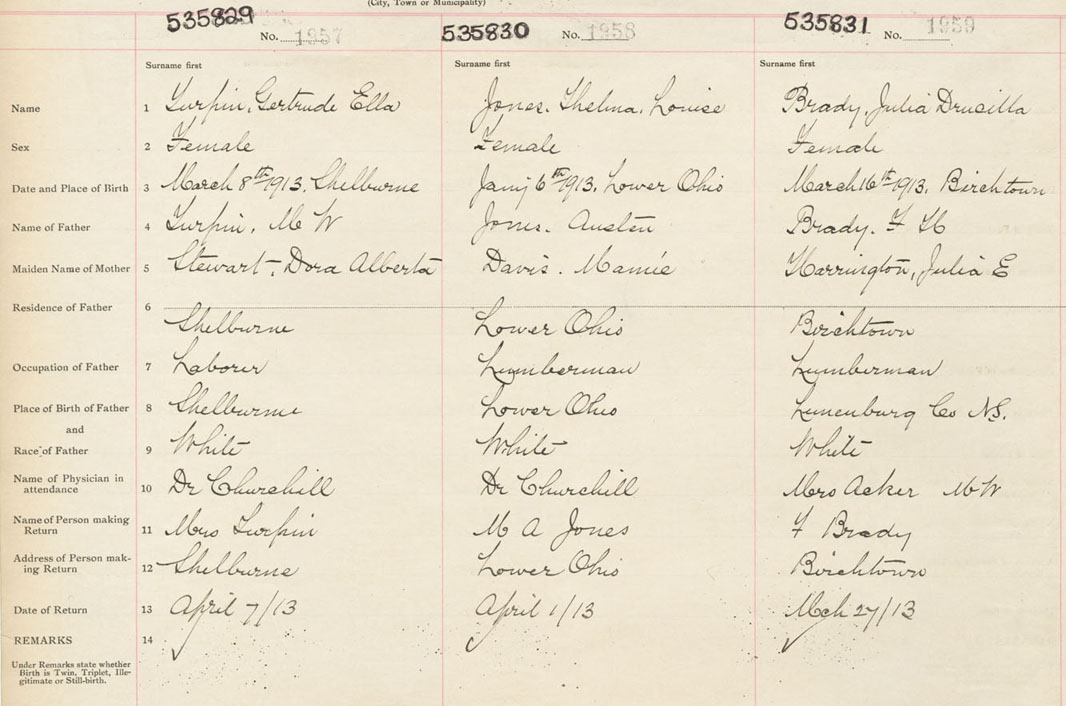 (City, Town or Municipality)
535829 No. 1957 535830 No. 1958 535831 No. 1959
Surname first Surname first Surname first
Name 1 Turpin, Gertrude Ella Jones. Thelma. Louise Brady, Julia Drusilla
Sex 2 Female Female Female
Date and Place of Birth 3 March 8th 1913. Shelburne Jany 6th 1913. Lower Ohio March 16th 1913. Birchtown
Name of Father 4 Turpin. M W Jones. Austen Brady. F H
Maiden Name of Mother 5 Stewart, Dora Alberta Davis. Mamie Harrington, Julia E
Residence of Father 6 Shelburne Lower Ohio Birchtown
Occupation of Father 7 Laborer Lumberman Lumberman
Place of Birth of Father 8 Shelburne Lower Ohio Lunenburg Co N.S.
and
Race of Father 9 White White White
Name of Physician in
attendance 10 Dr Churchill Dr Churchill Mrs Acker MW
Name of Person making
Return 11 Mrs Turpin M A Jones F Brady
Address of Person mak-
ing Return 12 Shelburne Lower Ohio Birchtown
Date of Return 13 April 7/13 April 1/13 Mch 27/13
REMARKS 14
Under Remarks state whether
Birth is Twin, Triplet, Ille-
gitimate or Still-birth.